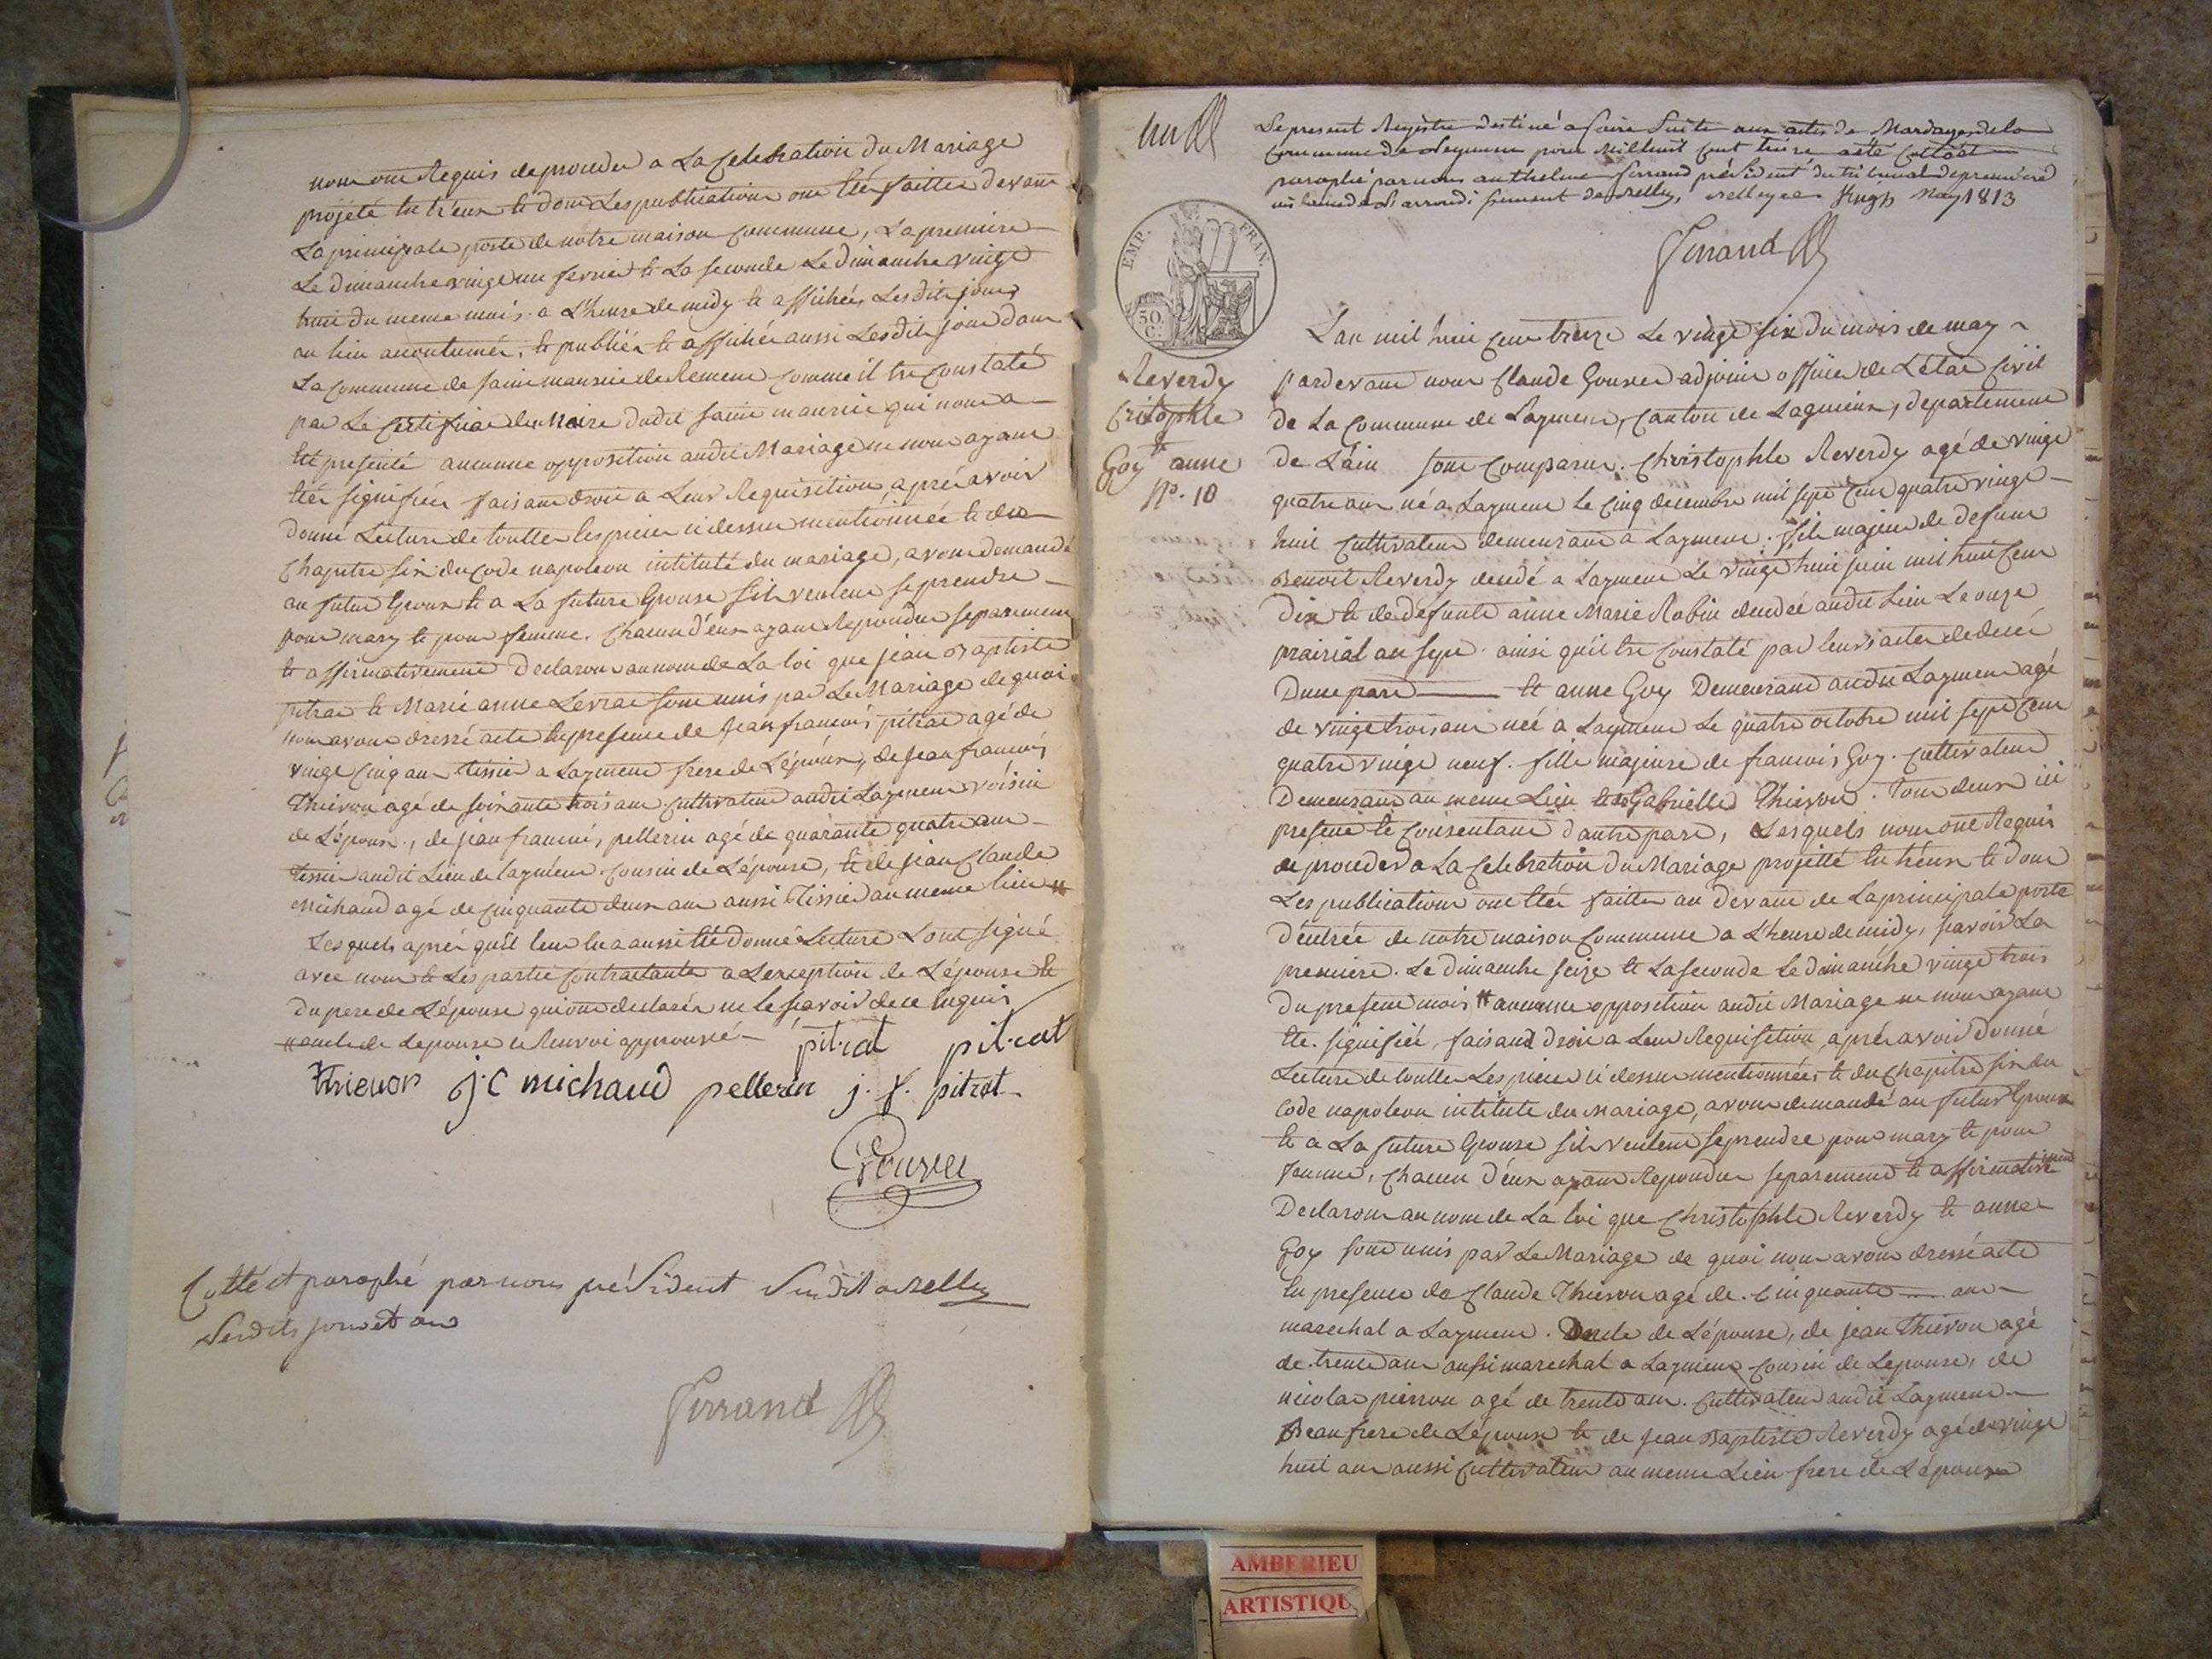 nous ont Requis de proceder a La Celebration du Mariage
projété entr'eux et dont Les publications ont été faittes devant
La principale porte de notre maison commune, La premiere
Le dimanche vingt un fevrier et La seconde Le dimanche vingt
huit du meme mois a L'heure de midy et affichées Lesdits jours
au lieu accoutumés, et publiées et affichées aussi Lesdits jours dans
La Commune de saint maurice de Remens comme il est constaté
par Le Certificat du Maire dudit saint maurice qui nous a
été presenté aucunne opposition audit Mariage ne nous ayant
été signifiée faisant droit a Leur Requisition, aprés avoir
donné Lecture de touttes Les pieces ci dessus mentionnées et du
Chapitre six du Code napoleon intitulé du mariage, avons demandé
au futur Epoux et a La future Epouse s'ils veulent se prendre
pour mary et pour femme. Chacun d'eux ayant Repondu separement
et affirmativement Declarons au nom de La loi que jean Baptiste
pitrat et Marie anne Levrat sont unis par Le Mariage de quoi
nous avons dressé acte En presence de Jean francois pitrat agé de
vingt Cinq ans tissier a Laymens frere de L'épóux, de Jean francois
Thievon agé de soixante trois ans cultivateur audit Laymens voisin
de L'époux, de jean francois pellerin agé de quarante quatre ans
tissier audit Lieu de laymens cousin de L'épouse, et de jean Claude
Michaud agé de Cinquante deux ans aussi Tissier au meme lieu #
Lesquels aprés qu'il leur en a aussi été donné Lecture L'ont signé
avec nous et Les parties Contractantes a L'exception de L'épouse et
du pere de L'épouse qui ont declarés ne le scavoir de ce Enquis
# oncle de Lepouse ce Renvoi approuvé
pitrat pitrat
thievon j. C michaud pellerin j. f. pitrat
Gouxer
Cotté et paraphé par nous président susdit a Belley
Lesdits jour et an
Ferrand
un
Le present Registre destiné a faire Suite aux actes de Mariages de la
Commune de Leymens pour Mil huit Cent treize a été Cotté et
paraphé par nous anthelme Ferrand président du tribunal de premiere
instance de L'arrondissement de Belley, a Belley ce vingt May 1813
Ferrand
EMP. FRAN.
50 C.
Reverdy
Cristophle
et
Goy anne
N°. 10
L'an mil huit Cent treize Le vingt six du mois de may
pardevant nous Claude Gouxer adjoint officier de L'état Civil
de La Commune de Laymens, Canton de Lagnieux, departement
de L'ain sont comparus. Christophle Reverdy agé de vingt
quatre ans né a Laymens le Cinq decembre mil sept Cent quatre vingt
huit Cultivateur demeurant a Laymens. fils majeur de defunt
Benoit Reverdy decedé a Laymens Le vingt huit juin mil huit Cent
Dix et de defunte anne Marie Robin decedée audit Lieu Le onze
prairial an sept. ainsi qu'il est constaté par leurs actes de decés
D'une part et anne Goy Demeurand audit Laymens agé
de vingt trois ans née a Laymens Le quatre octobre mil sept Cent
quatre vingt neuf. fille majeure de francois Goy. Cultivateur
Demeurant au meme Lieu et de Gabrielle Thievon. Tous deux ici
present et Consentant d'autre part, Lesquels nous ont Requis
de proceder a La Celebration du Mariage projetté entr'eux et dont
Les publications ont été faittes au devant de La principale porte
d'éntrée de notre maison Commune a L'heure de midy, scavoir La
premiere. Le dimanche seize et La seconde Le dimanche vingt trois
du present mois # aucunne opposition audit Mariage ne nous ayant
été signifiée, faisant Droit a Leur Requisition, aprés avoir donné
Lecture de touttes Les pieces ci dessus mentionnées, et du Chapitre six du
Code napoleon intitulé du Mariage, avons demandé au futur Epoux
et a La future Epouse s'ils veulent se prendre pour mary et pour
femme, Chacun d'eux ayant Repondu separement et affirmativement
Declarons au nom de La loi que Christophle Reverdy et anne
Goy sont unis par Le Mariage de quoi nous avons dressé acte
En presence de Claude Thievon agé de Cinquante ans
marechal a Laymens. Oncle de L'épouse, de jean Thievon agé
de trente ans aussi marechal a Laymens Cousin de Lepouse, de
nicolas pierron agé de trente ans. Cultivateur audit Laymens
Beau frere de L'époux et de Jean Baptiste Reverdy agé de vingt
huit ans aussi Cultivateur au meme Lieu frere de L'époux
AMBERIEU
ARTISTIQU